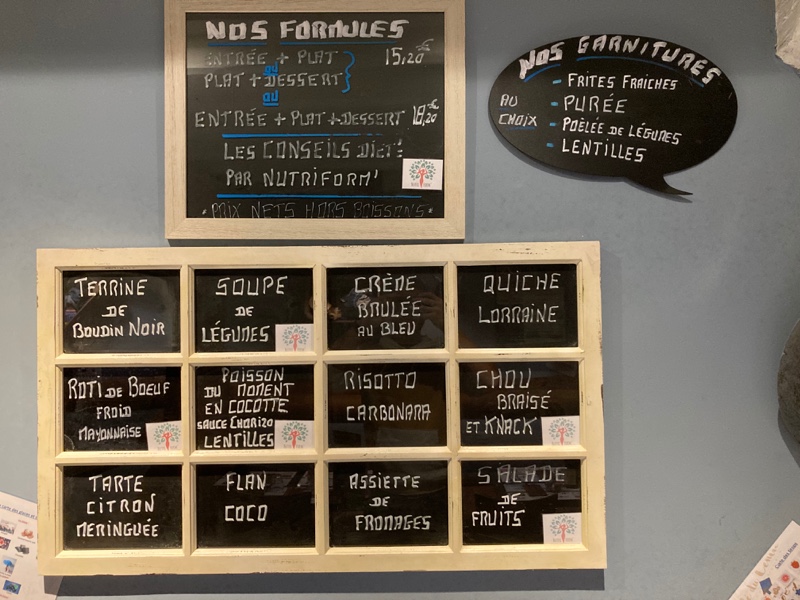 NOS FORMULES
ENTRÉE + PLAT 15,20€
ou
PLAT + DESSERT
ou
ENTRÉE + PLAT + DESSERT 18,20€
LES CONSEILS DIET'
PAR NUTRIFORM'
• PRIX NETS HORS BOISSONS •
NOS GARNITURES
AU
CHOIX
- FRITES FRAICHES
- PURÉE
- POÊLÉE DE LÉGUMES
- LENTILLES
TERRINE
DE
BOUDIN NOIR
SOUPE
DE
LÉGUMES
CRÈME
BRULÉE
AU BLEU
QUICHE
LORRAINE
ROTI DE BOEUF
FROID
MAYONNAISE
POISSON
DU MOMENT
EN COCOTTE
SAUCE CHORIZO
LENTILLES
RISOTTO
CARBONARA
CHOU
BRAISÉ
ET KNACK
TARTE
CITRON
MERINGUÉE
FLAN
COCO
ASSIETTE
DE
FROMAGES
SALADE
DE
FRUITS